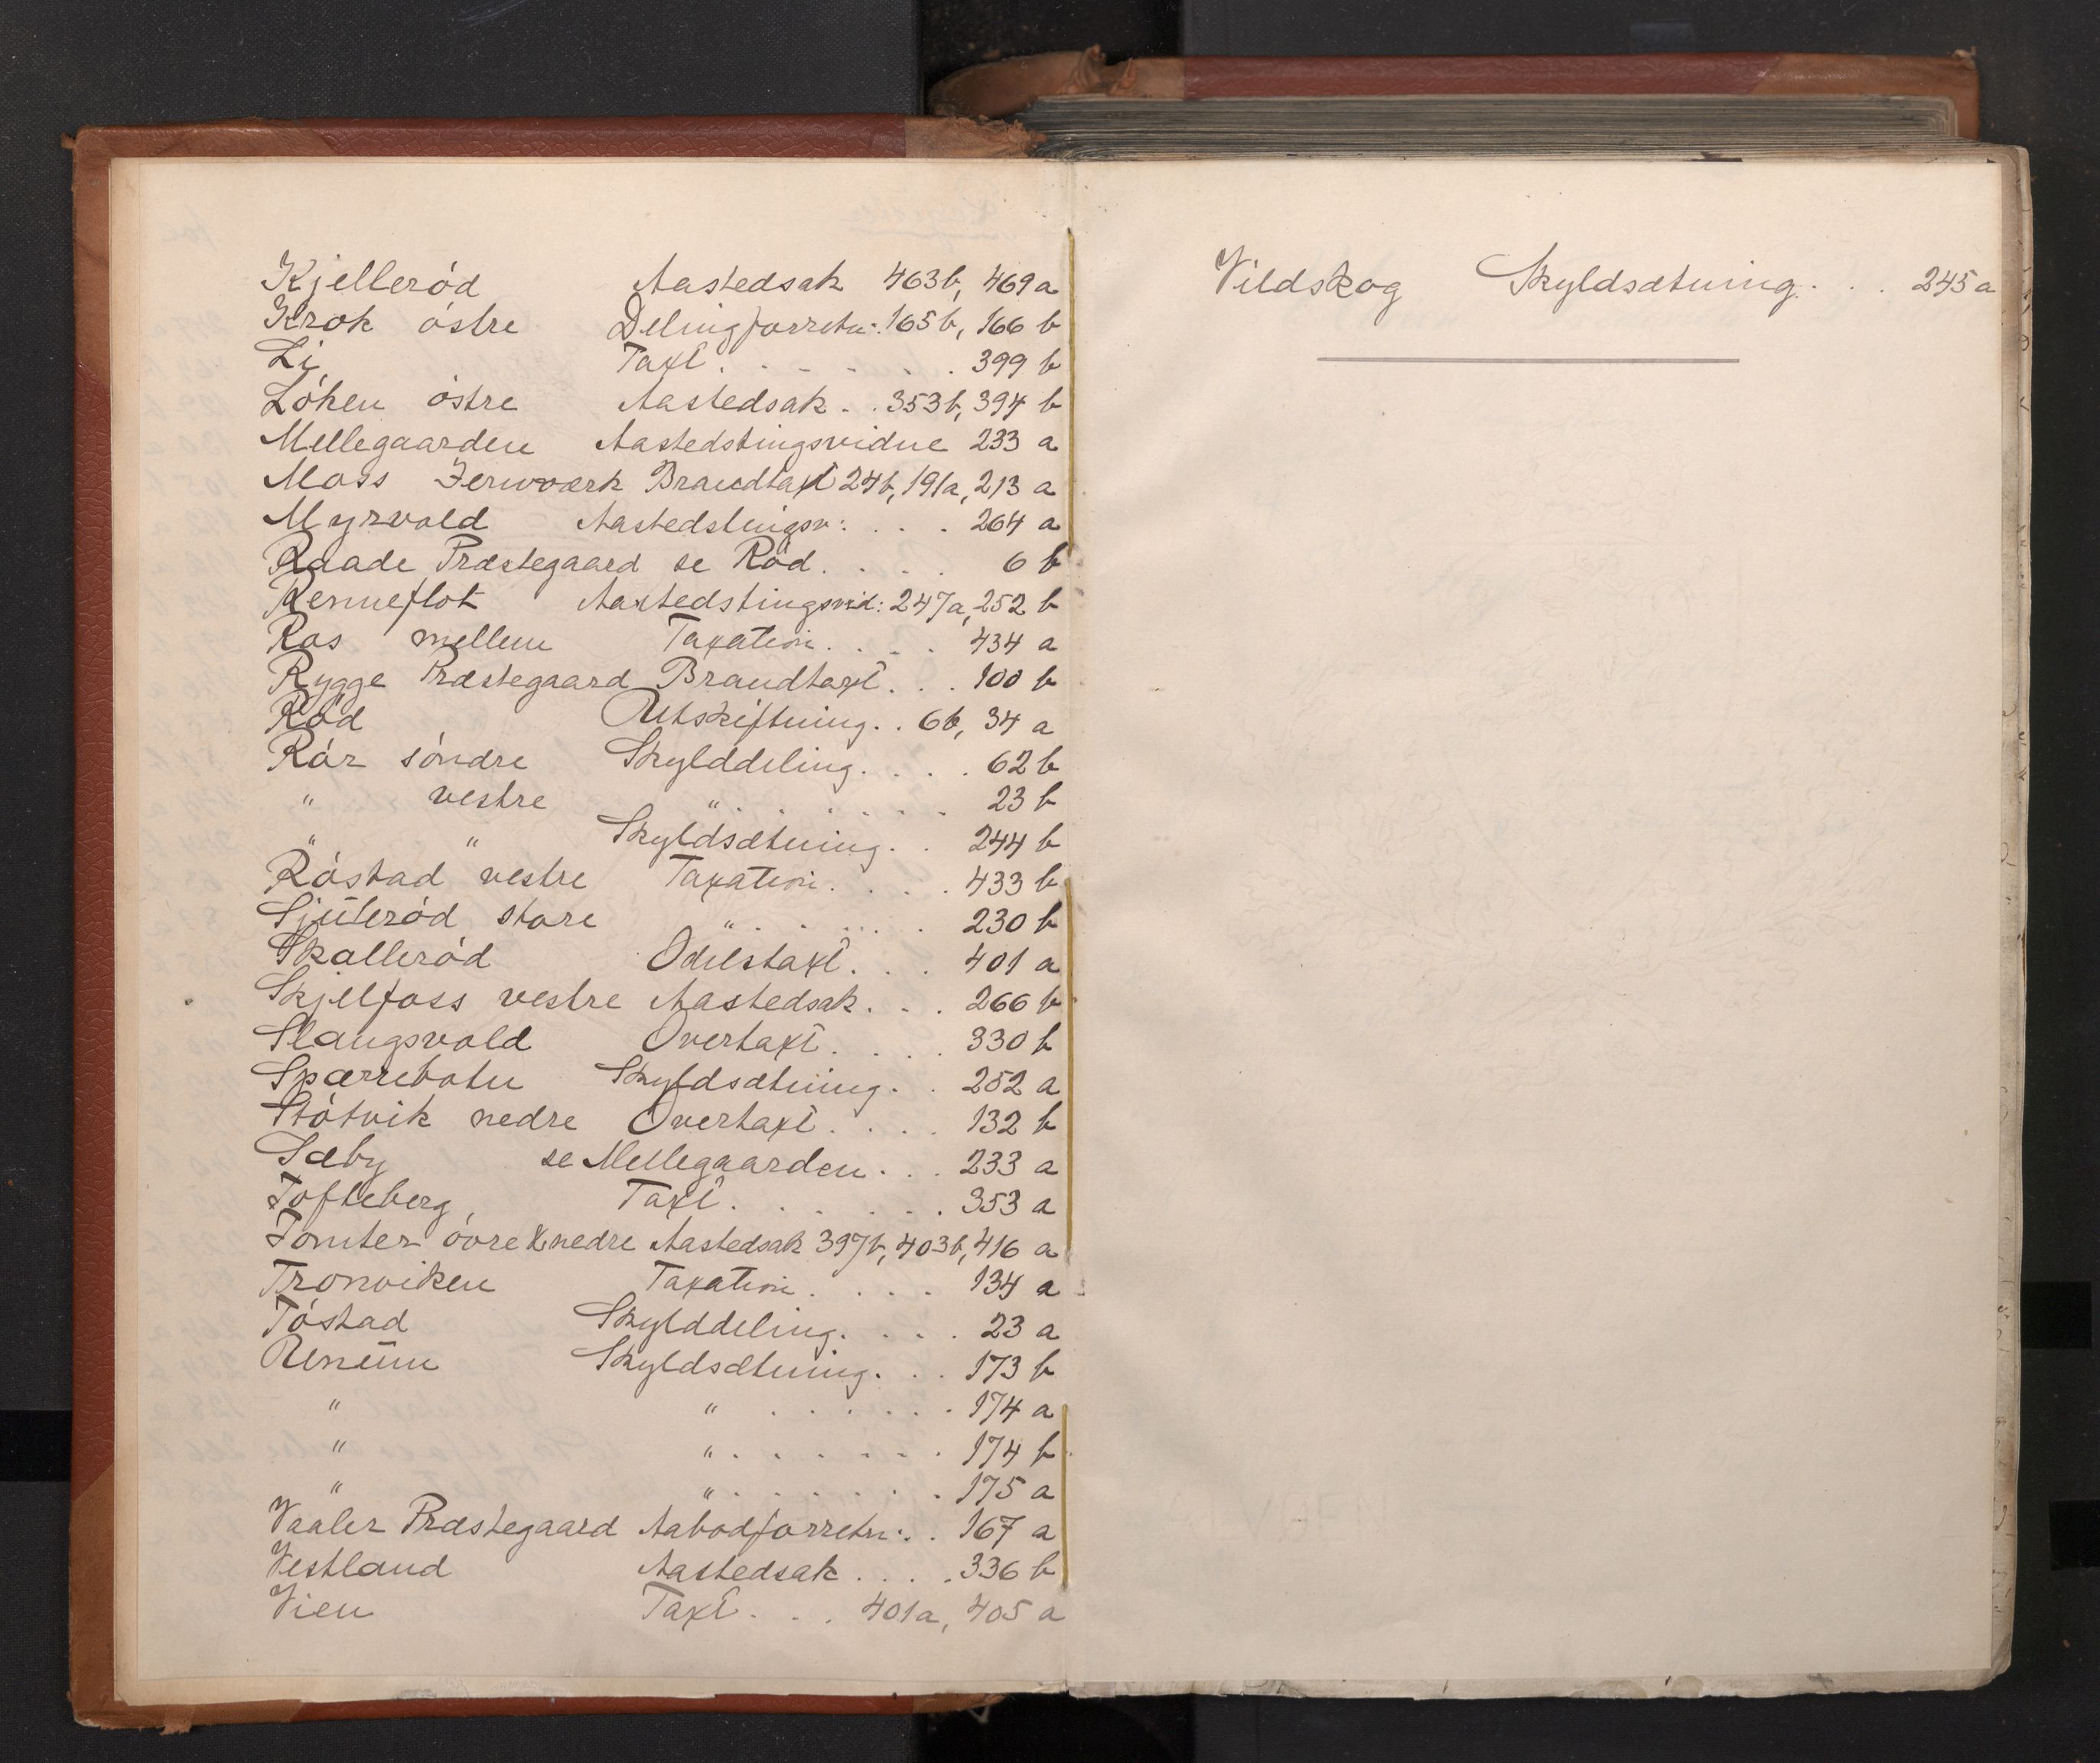 Kjelleröd Aastedsak 463b, 469a
Krok östre Delingforretn: 165b, 166 b
Li, Taxt . . . . . . 399 b
Löken östre Aastedsak . . 353b, 394 b
Mellegaarden Aastedstingsvidne 233 a
Moss Jernværk Brandtaxt 24b, 191a, 213 a
Myrvold Aastedstingsv: . . . 264 a
Raade Præstegaard se Röd . . . . 6 b
Renneflot Aastedstingsvid: 247a, 252 b
Ros mellem Taxation . . . . 434 a
Rygge Præstegaard Brandtaxt . . . 100 b
Röd Utskiftning . . 6b, 34 a
Rör söndre Skylddeling . . . . 62 b
" vestre " . . . . . . 23 b
" " Skyldsætning . . 244 b
Röstad vestre Taxation . . . . 433 b
Sjuleröd store " . . . . . 230 b
Skalleröd Odelstaxt . . . 401 a
Skjelfoss vestre Aastedsak . . . 266 b
Slangsvold Overtaxt . . . . 330 b
Spærrebotn Skyldsætning . . 252 a
Støtvik nedre Overtaxt . . . . 132 b
Sæby se Mellegaarden . . . 233 a
Tofteberg, Taxt . . . . . . 353 a
Tomter övre & nedre Aastedsak 397b, 403b, 416 a
Tronviken Taxation . . . . 134 a
Töstad Skylddeling . . . . 23 a
Unum Skyldsætning . . . 173 b
" " . . . . . . 174 a
" " . . . . . . 174 b
" " . . . . . . 175 a
Vaaler Præstegaard Aabodforretn: . . 167 a
Vestland Aastedsak . . . . 336 b
Vien Taxt . . . 401a, 405 a
Vildskog Skyldsætning . . . 245 a